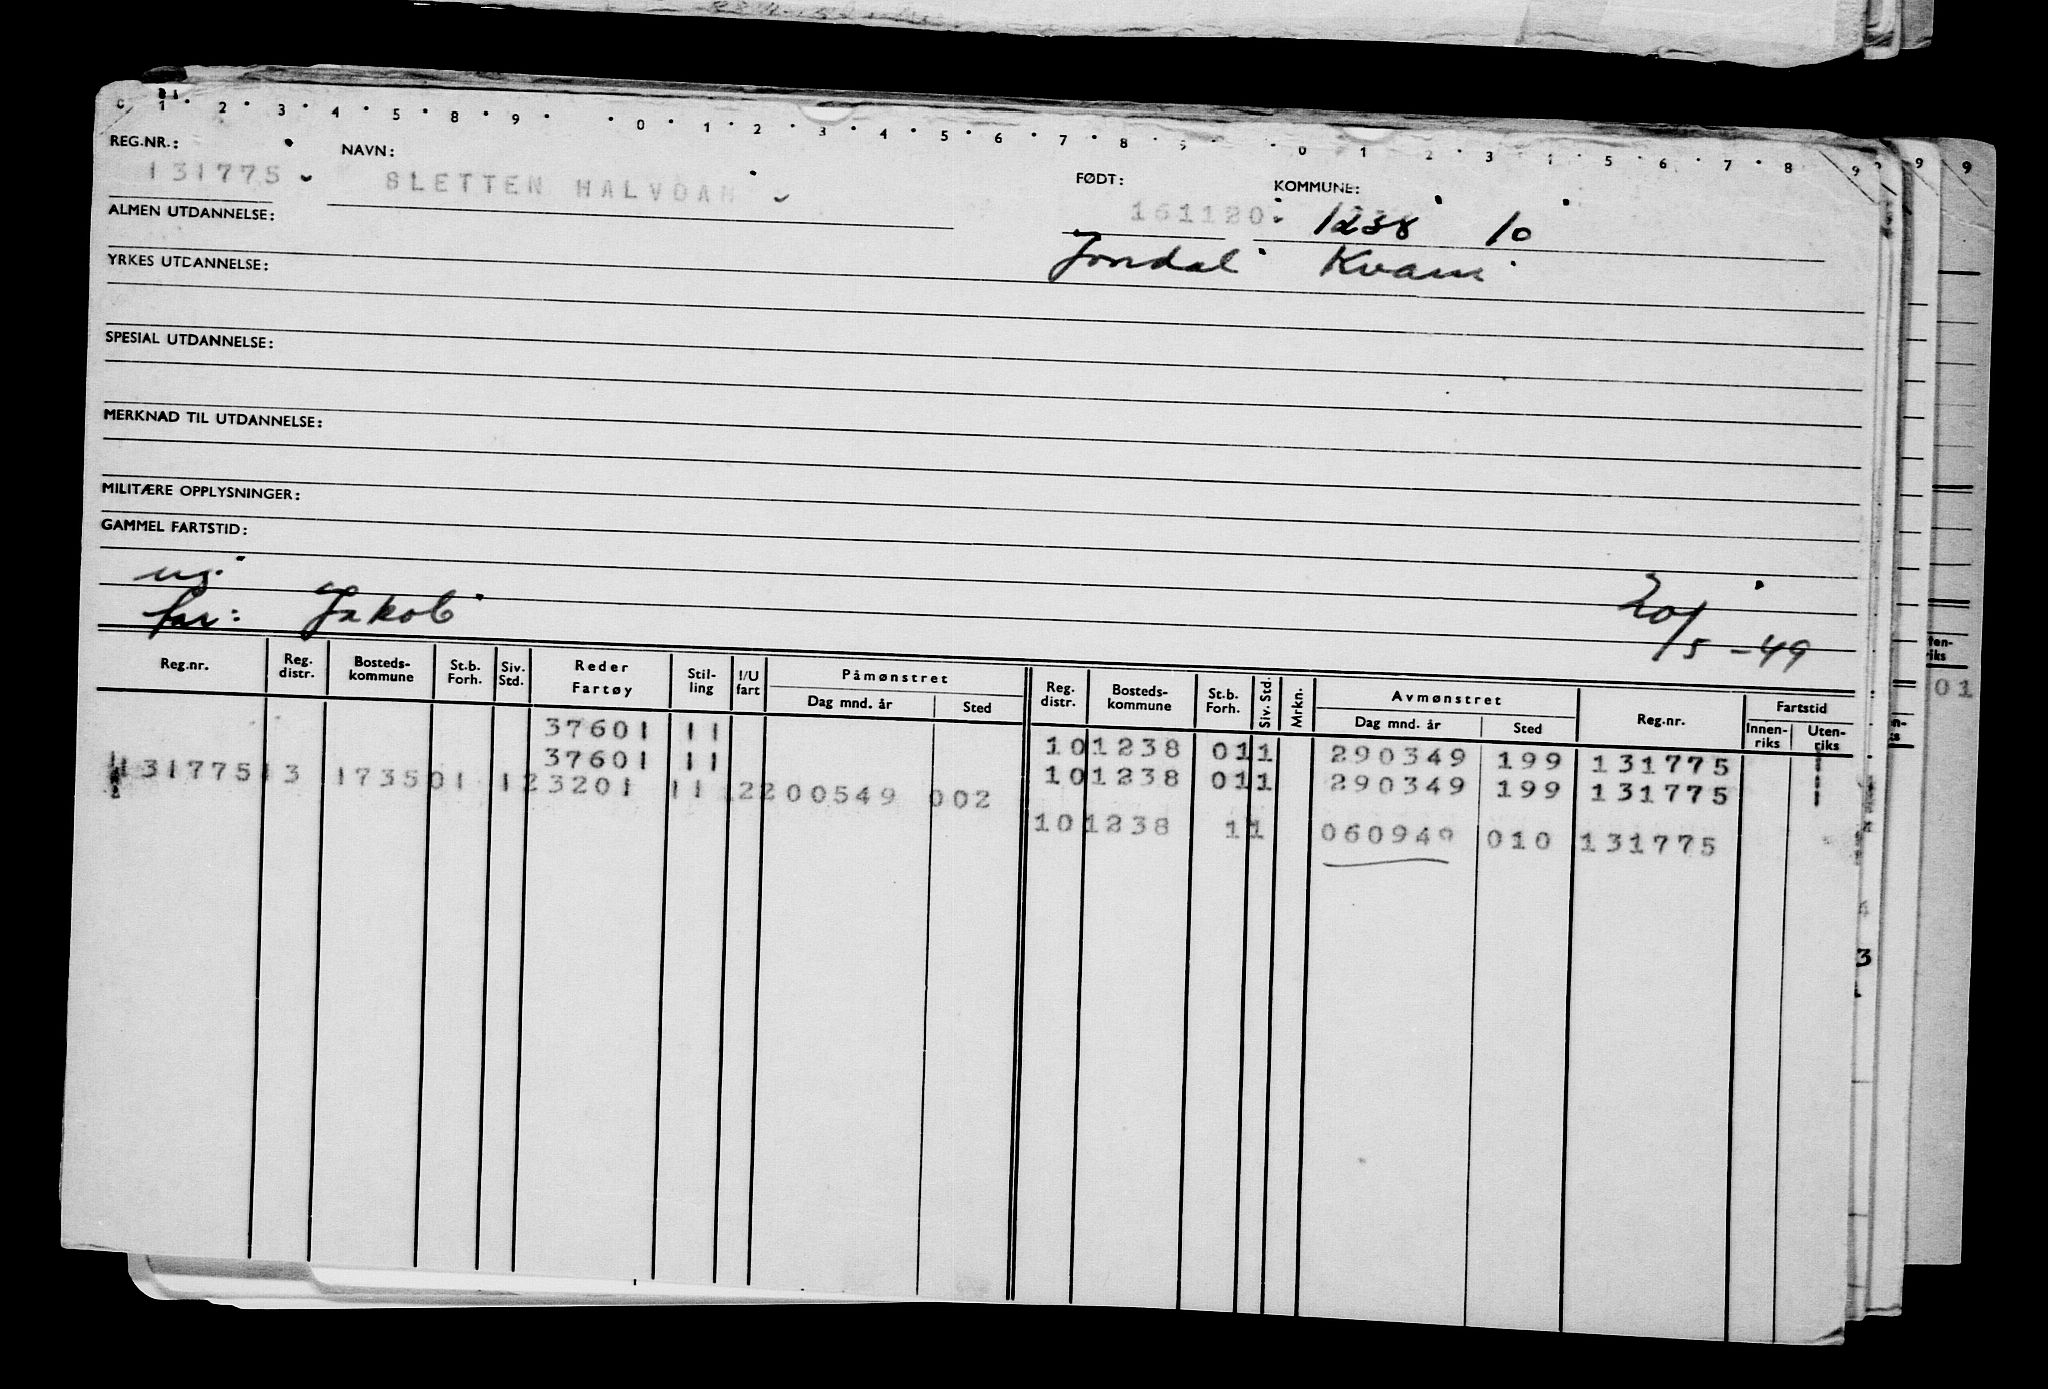 0 1 2 3 4 5 8 9 0 1 2 3 4 5 6 7 8 9 0 1 2 3 4 5 6 7 8 9
REG.NR.: NAVN: FØDT: KOMMUNE:
131775 SLETTEN HALVDAN 161120 1238 10
ALMEN UTDANNELSE:
Jondal Kvam
YRKES UTDANNELSE:
SPESIAL UTDANNELSE:
MERKNAD TIL UTDANNELSE:
MILITÆRE OPPLYSNINGER:
GAMMEL FARTSTID:
ug.
far: Jakob 20/5-49
Reg.nr. Reg. distr. Bosteds-kommune St.b. Forh. Siv. Std. Reder Fartøy Stil-ling I/U fart Påmønstret Dag mnd. år Sted Reg. distr. Bosteds-kommune St.b. Forh. Siv. Std. Mrkn. Avmønstret Dag mnd. år Sted Reg.nr. Fartstid Innen-riks Uten-riks
37601 11 101238 011 290349 199 131775
37601 11 101238 011 290349 199 131775
131775 13 173501 123201 11 2200549 002
101238 11 060949 010 131775
9 9
ten-
riks
01
3